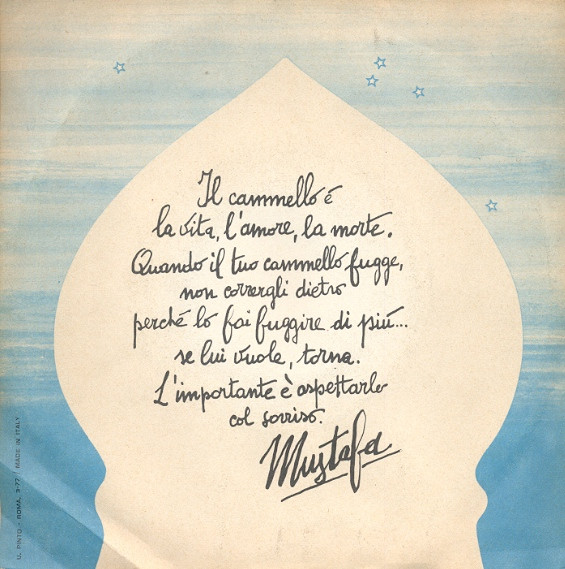 Il cammello é
la vita, l'amore, la morte.
Quando il tuo cammello fugge,
non corrergli dietro
perché lo fai fuggire di piú...
se lui vuole, torna.
L'importante è aspettarlo
col sorriso.
Mustafa
U. PINTO - ROMA, 3-77 / MADE IN ITALY